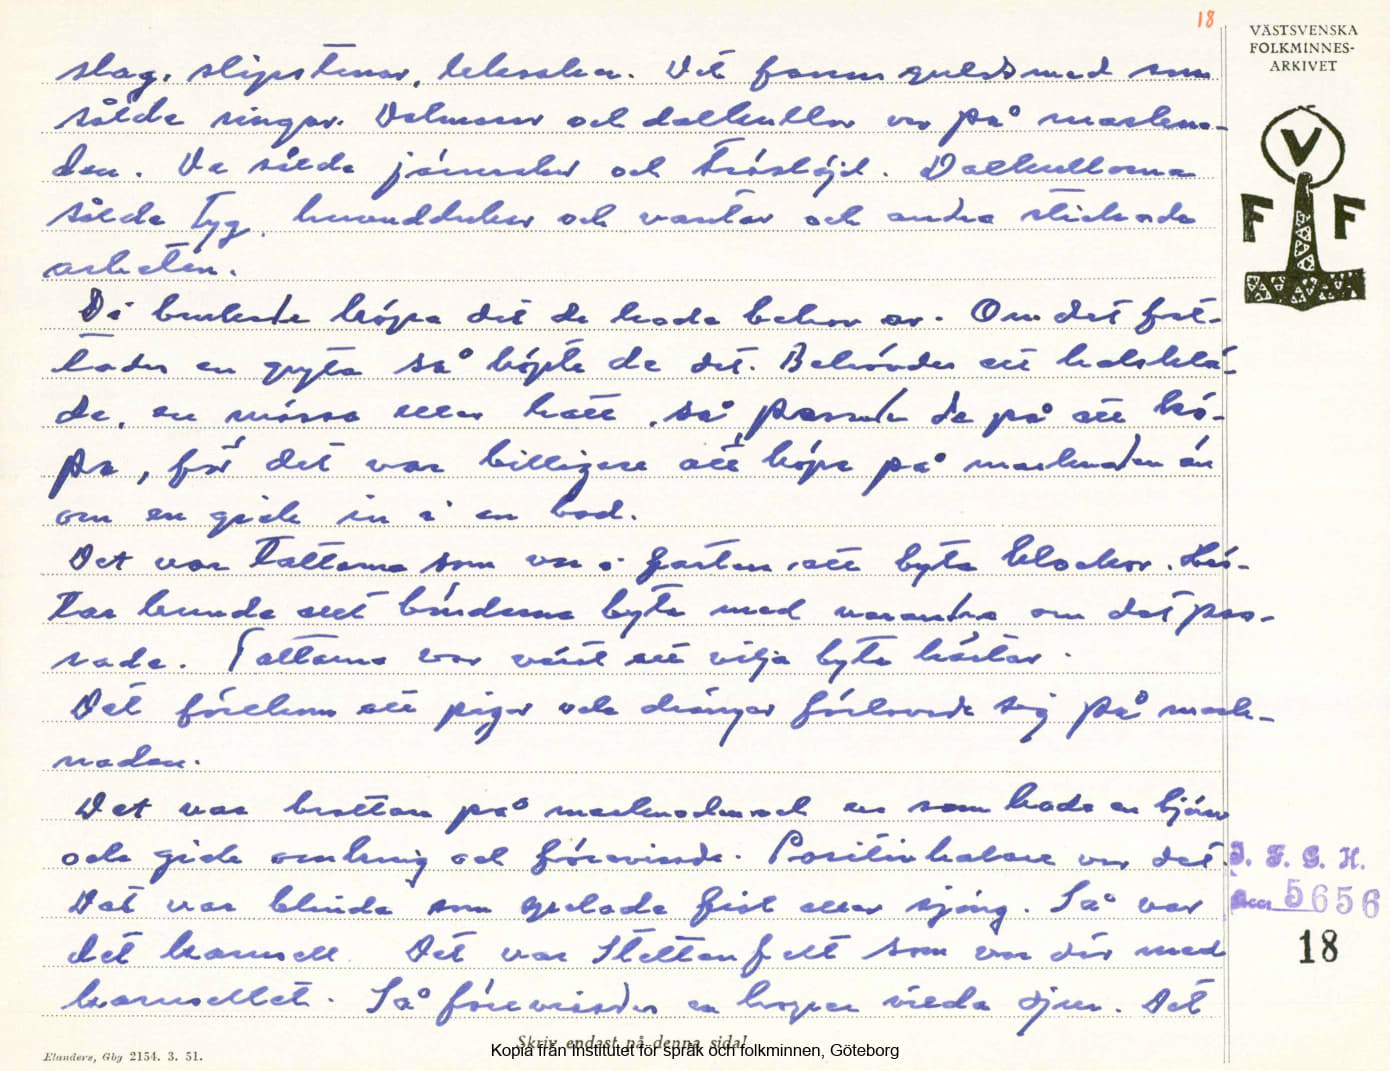 18
VÄSTSVENSKA
FOLKMINNES-
ARKIVET
V
F F
slag, slipstenar, leksaker. Det fanns guldsmed som
sålde ringar. Dalmasar och dalkullor var på markna-
den. De sålde järnsaker och träslöjd. Dalkullorna
sålde tyg, huvuddukar och vantar och andra stickade
arbeten.
Di brukade köpa det de hade behov av. Om det fat-
tades en gryta så köpte de det. Behövdes ett halsklä-
de, en mössa eller hatt, så passade de på att kö-
pa, för det var billigare att köpa på marknaden än
om en gick in i en bod.
Det var tattarna som var i farten att byta klockor. Häs-
tar kunde ett bönderna byta med varandra om det pas-
sade. Tattarna var värst att vilja byta hästar.
Det förekom att pigor och drängar förlovade sig på mark-
naden.
Det var brottan på marknaden och en som hade en björn
och gick omkring och förevisade. Positivhalare var det.
Det var blinda som spelade fiol eller sjöng. Så var
det karusell. Det var Stettenfelt som var där med
karusellet. Så förevisades en hoper vilda djur. Det
I. F. G. H.
Acc 5656
18
Skriv endast på denna sida!
Elanders, Gbg 2154. 3. 51.
Kopia från Institutet för språk och folkminnen, Göteborg